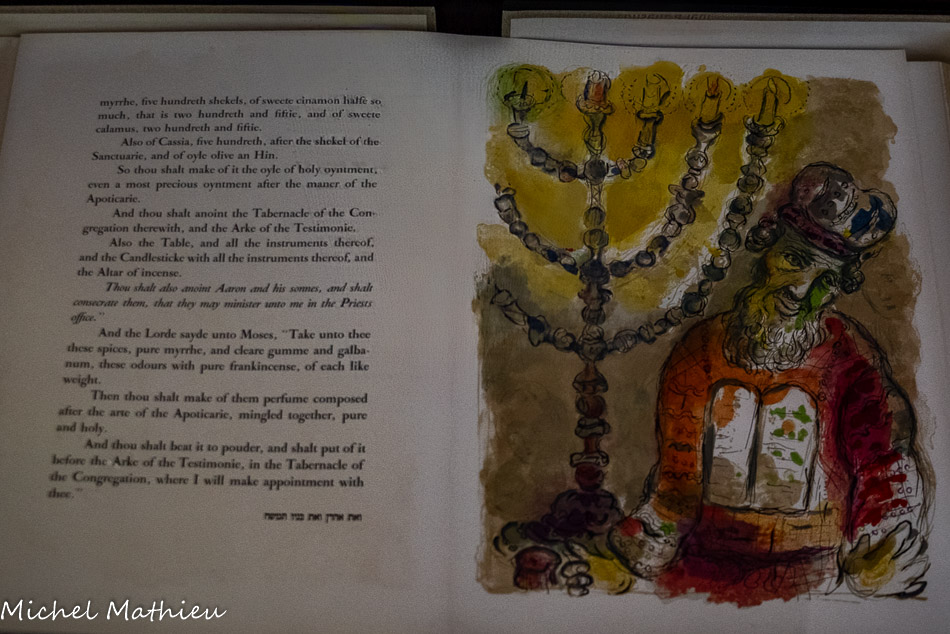 myrrhe, five hundreth shekels, of sweete cinamon halfe so
much, that is two hundreth and fiftie, and of sweete
calamus, two hundreth and fiftie.
Also of Cassia, five hundreth, after the shekel of the
Sanctuarie, and of oyle olive an Hin.
So thou shalt make of it the oyle of holy oyntment,
even a most precious oyntment after the maner of the
Apoticarie.
And thou shalt anoint the Tabernacle of the Con-
gregation therewith, and the Arke of the Testimonie.
Also the Table, and all the instruments thereof,
and the Candlesticke with all the instruments thereof, and
the Altar of incense.
Thou shalt also anoint Aaron and his sonnes, and shalt
consecrate them, that they may minister unto me in the Priests
office."
And the Lorde sayde unto Moses, "Take unto thee
these spices, pure myrrhe, and cleare gumme and galba-
num, these odours with pure frankincense, of each like
weight.
Then thou shalt make of them perfume composed
after the arte of the Apoticarie, mingled together, pure
and holy.
And thou shalt beat it to pouder, and shalt put of it
before the Arke of the Testimonie, in the Tabernacle of
the Congregation, where I will make appointment with
thee."
ואת אהרן ואת בניו תמשח
Michel Mathieu